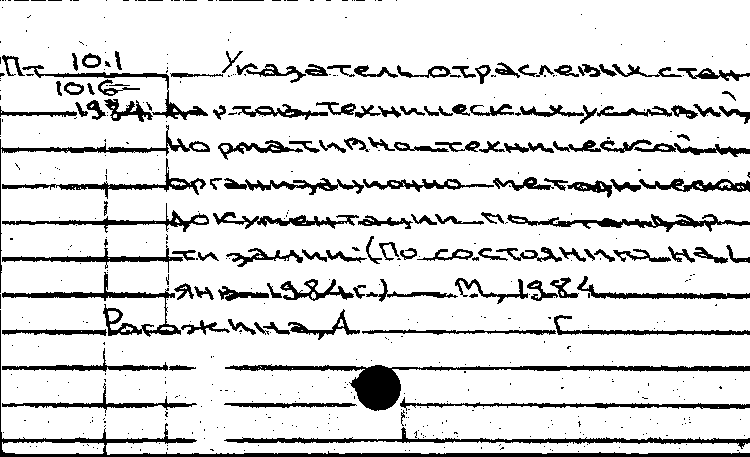 Пт 10.1 Указатель отраслевых стан-
1016-
1984 дартов, технических условий,
нормативно-технической и
организационно-методической
документации по стандар-
тизации: (По состоянию на 1
янв. 1984г.) — М, 1984
Рагажина, А Г